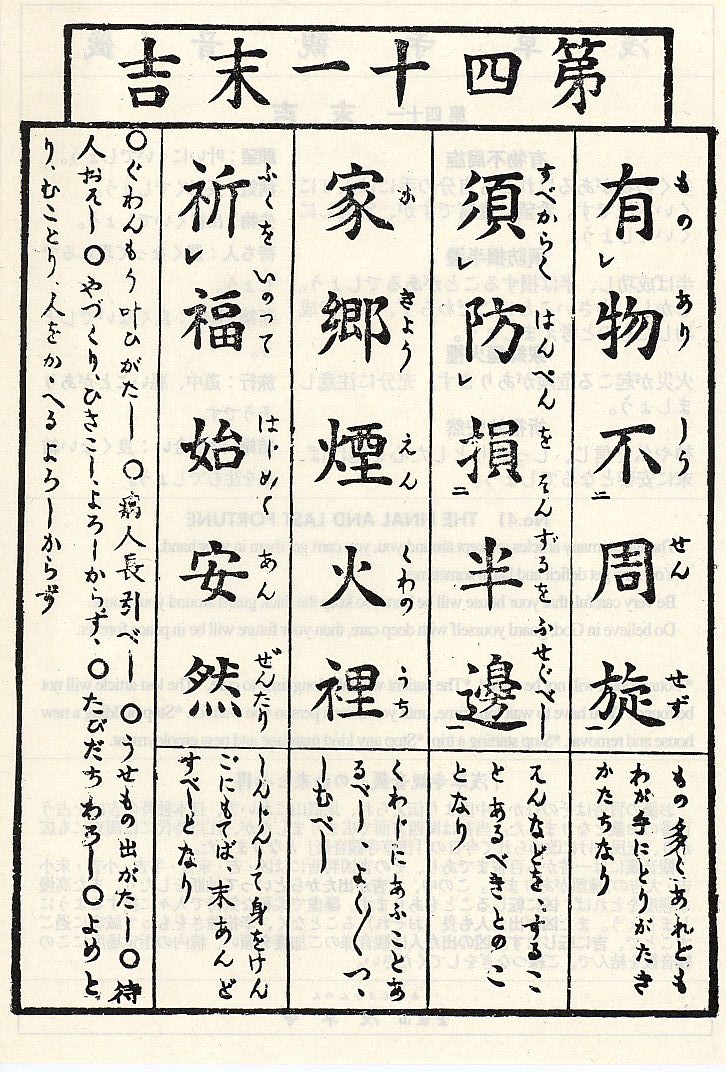 第四十一末吉
もの あり しう せん せず
有レ物不二周旋一
もの多くあれども
わが手にとりがたき
かたちなり
すべからく はんぺんを そんずるを ふせぐべし
須レ防レ損二半邊一
そんなどを、するこ
とあるべきとのこ
となり
か きよう えん くわの うち
家郷煙火裡
くわじにあふことあ
るべし よく〳〵つゝ
しむべし
ふくを いのつて はじめて あん ぜんたり
祈レ福始安然
しんじんして身をけん
ごにもてば末あんど
すべしとなり
○ぐわんもう叶ひがたし○病人長引べし○うせもの出がたし○待
人おそし○やづくりひきこし、よろしからず、○たびだちわろし○よめと
り、むことり、人をかゝへるよろしからず